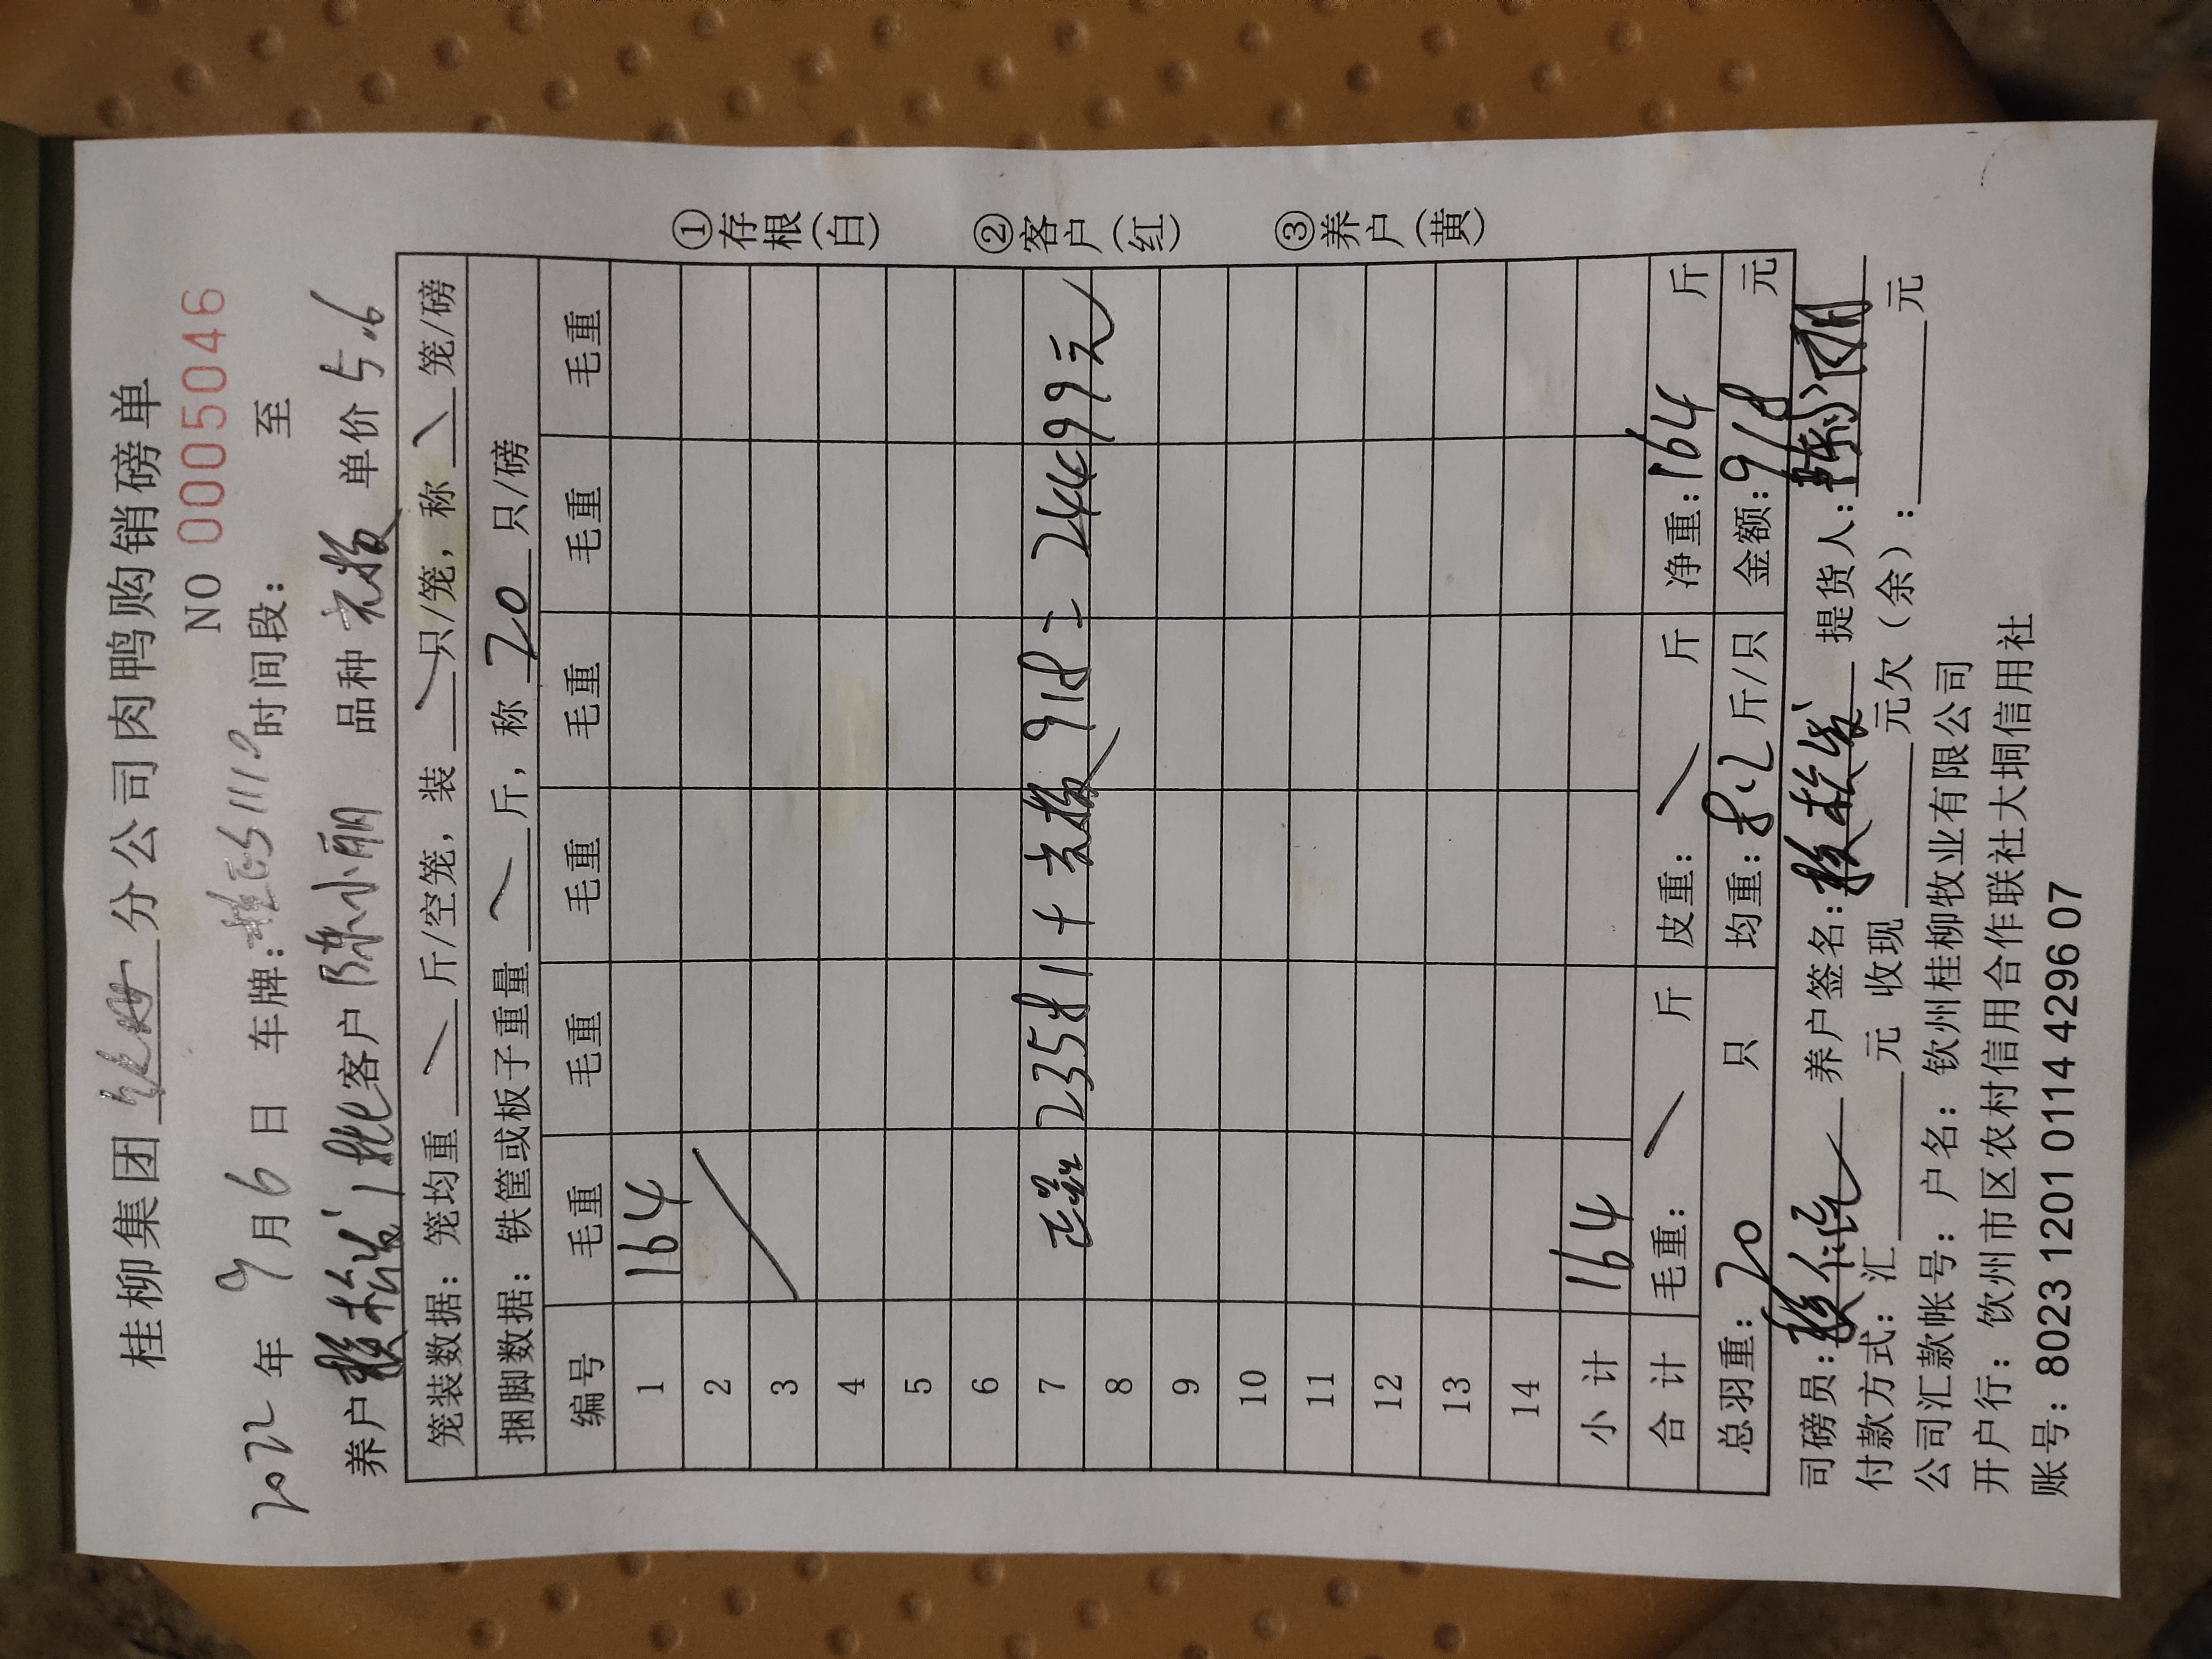 桂柳集团 分公司肉鸭购销磅单
NO 0005046
2022 年 9 月 6 日 车牌: 时间段: 至
养户 赖松发 1批 客户 陈小丽 品种 单价 5.6
笼装数据: 笼均重 斤/空笼, 装 只/笼, 称 笼/磅
捆脚数据: 铁筐或板子重量 斤, 称 20 只/磅
编号 毛重 毛重 毛重 毛重 毛重 毛重
1 164
2
3
4
5
6
7 正品 23581 + 918 = 24499元
8
9
10
11
12
13
14
小计 164
合计 毛重: 斤 皮重: 斤 净重: 164 斤
总羽重: 20 只 均重: 8.2 斤/只 金额: 918 元
司磅员: 养户签名: 赖松发 提货人:
付款方式: 汇 元 收现 元欠(余): 元
公司汇款帐号: 户名: 钦州桂柳牧业有限公司
开户行: 饮州市区农村信用合作联社大垌信用社
账号: 8023 1201 0114 4296 07
①存根(白)
②客户(红)
③养户(黄)